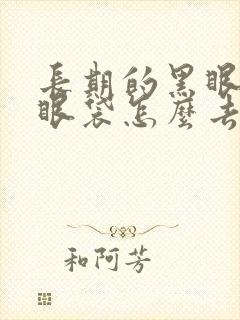 長期的黑眼
眼袋怎麼去
和阿芳